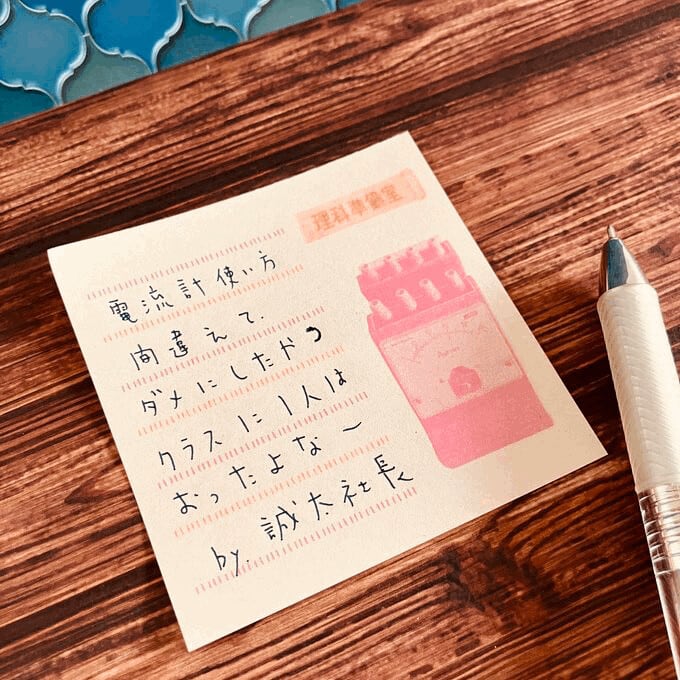 理科準備室
電流計使い方
間違えて、
ダメにしたドつ
クラスに1人は
おったよな〜
by. 誠太社長